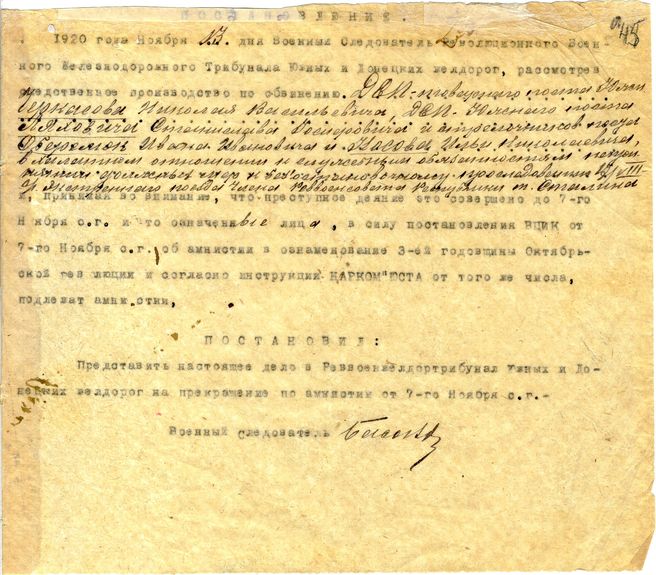 ПОСТАНОВЛЕНИЕ.
45
1920 года Ноября 17. дня Военный Следователь Революционного Воен
ного Железнодорожного Трибунала Южных и Донецких желдорог, рассмотрев
следственное производство по обвинению. ДСП-товарного поста
Черкасова Николая Васильевича, ДСП-Южного поста
Станислава и стрелочников поста
Ивана Ивановича и Носова Ильи Николаевича,
в халатном отношении к служебным обязанностям
мер к проследованию 12/VIII-
поезда Члена Реввоенсовета Республики т. Сталина
и, принимая во внимание, что преступное деяние это совершено до 7-го
Ноября с.г. и что означенные лица, в силу постановления ВЦИК от
7-го Ноября с.г. об амнистии в ознаменование 3-ей годовщины Октябрь-
ской революции и согласно инструкций НАРКОМ"ЮСТА от того же числа,
подлежат амнистии,
ПОСТАНОВИЛ:
Представить настоящее дело в Реввоенжелдортрибунал Южных и До-
нецких желдорог на прекращение по амнистии от 7-го Ноября с.г.-
Военный следователь